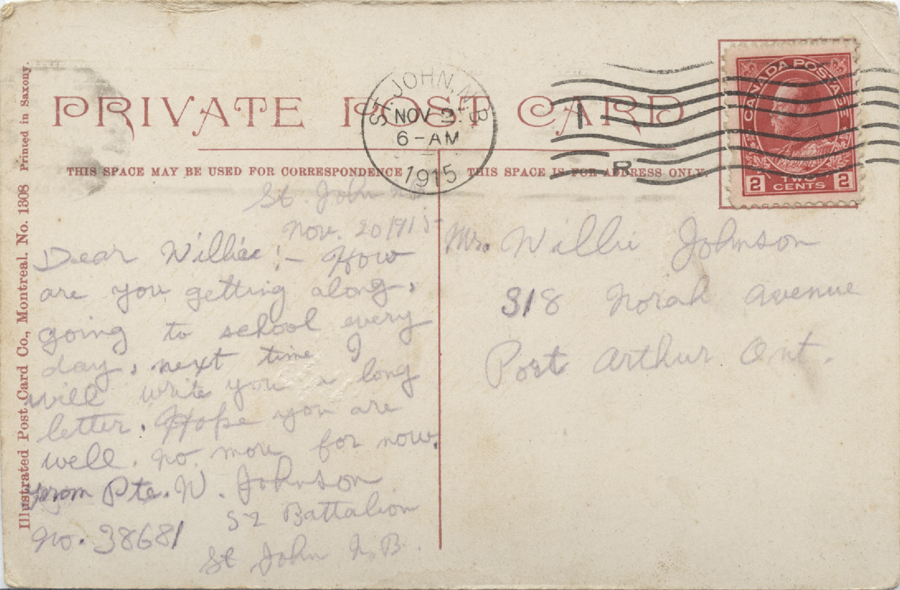 PRIVATE POST CARD
THIS SPACE MAY BE USED FOR CORRESPONDENCE
THIS SPACE IS FOR ADDRESS ONLY
Illustrated Post Card Co., Montreal. No. 1308 Printed in Saxony.
ST. JOHN, N.B.
NOV
6-AM
1915
CANADA POSTAGE
2 TWO CENTS 2
St. John
Nov. 20/1915
Dear Willie:- How
are you getting along,
going to school every
day, next time I
will write you a long
letter. Hope you are
well. no more for now.
from Pte. W. Johnson
No. 38681 52 Battalion
St John N.B.
Mr. Willie Johnson
318 Norah Avenue
Port Arthur Ont.